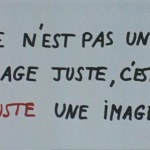 E N'EST PAS UN
AGE JUSTE, C'ES
USTE UNE IMAGE